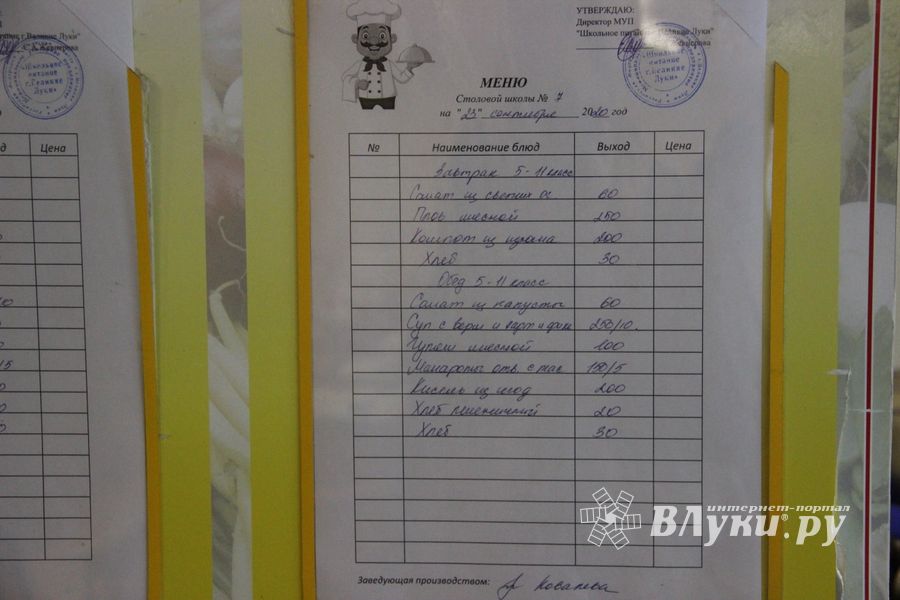 УТВЕРЖДАЮ:
Директор МУП
"Школьное Великие Луки"
МЕНЮ
Столовой школы № 7
на "23" сентября 2020 год
№ Наименование блюд Выход Цена
Завтрак 5-11 класс
Салат из свежих ог. 60
Плов мясной 250
Компот из изюма 200
Хлеб 30
Обед 5-11 класс
Салат из капусты 60
Суп с верм и карт и фрик 250/10.
Гуляш мясной 100
Макароны отв. с мас 150/5
Кисель из ягод 200
Хлеб пшеничный 20
Хлеб 30
Заведующая производством:
Цена
г. Великие Луки"
"Школьное
питание
г.Великие
Луки"
"Школьное
питание
г.Великие
Луки"
интернет-портал
ВЛуки.ру